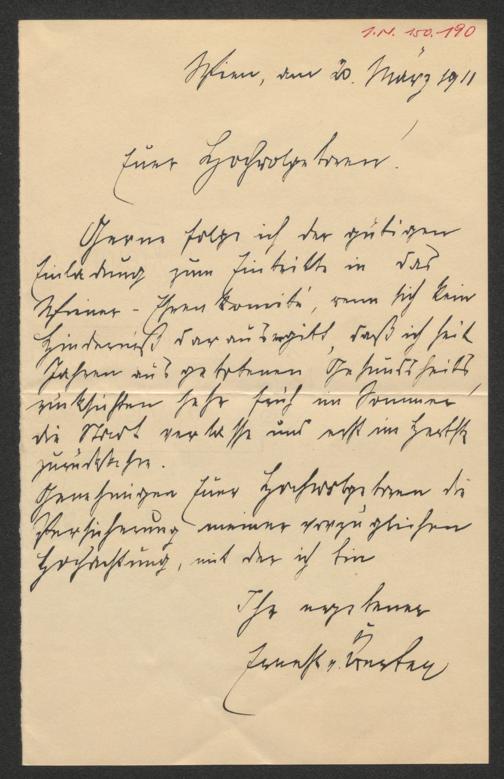 I.N. 150.190
Wien, am 20. März 1911
Euer Hochwolgeboren!
Gerne folge ich der gütigen
Einladung zum Eintritte in das
Wiener-Ehrenkomité, wenn sich kein
Hinderniß daraus ergibt, daß ich seit
Jahren aus gebotenen Gesundheits
rücksichten sehr früh im Sommer
die Stadt verlasse und erst im Herbste
zurückkehre.
Genehmigen Euer Hochwolgeboren die
Versicherung meiner vorzüglichen
Hochachtung, mit der ich bin
Ihr ergebener
Ernest v.